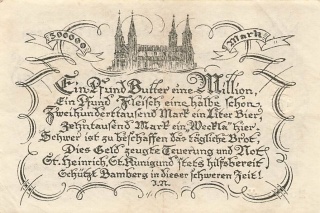 500000 Mark
Ein Pfund Butter eine Million,
Ein Pfund Fleisch eine halbe schon,
Zweihunderttausend Mark ein Liter Bier,
Zehntausend Mark ein Weckla hier.
Schwer ist zu beschaffen das tägliche Brot,
Dies Geld zeugte Teuerung und Not.
St. Heinrich, St. Kunigund stets hilfsbereit
Schützt Bamberg in dieser schweren Zeit!